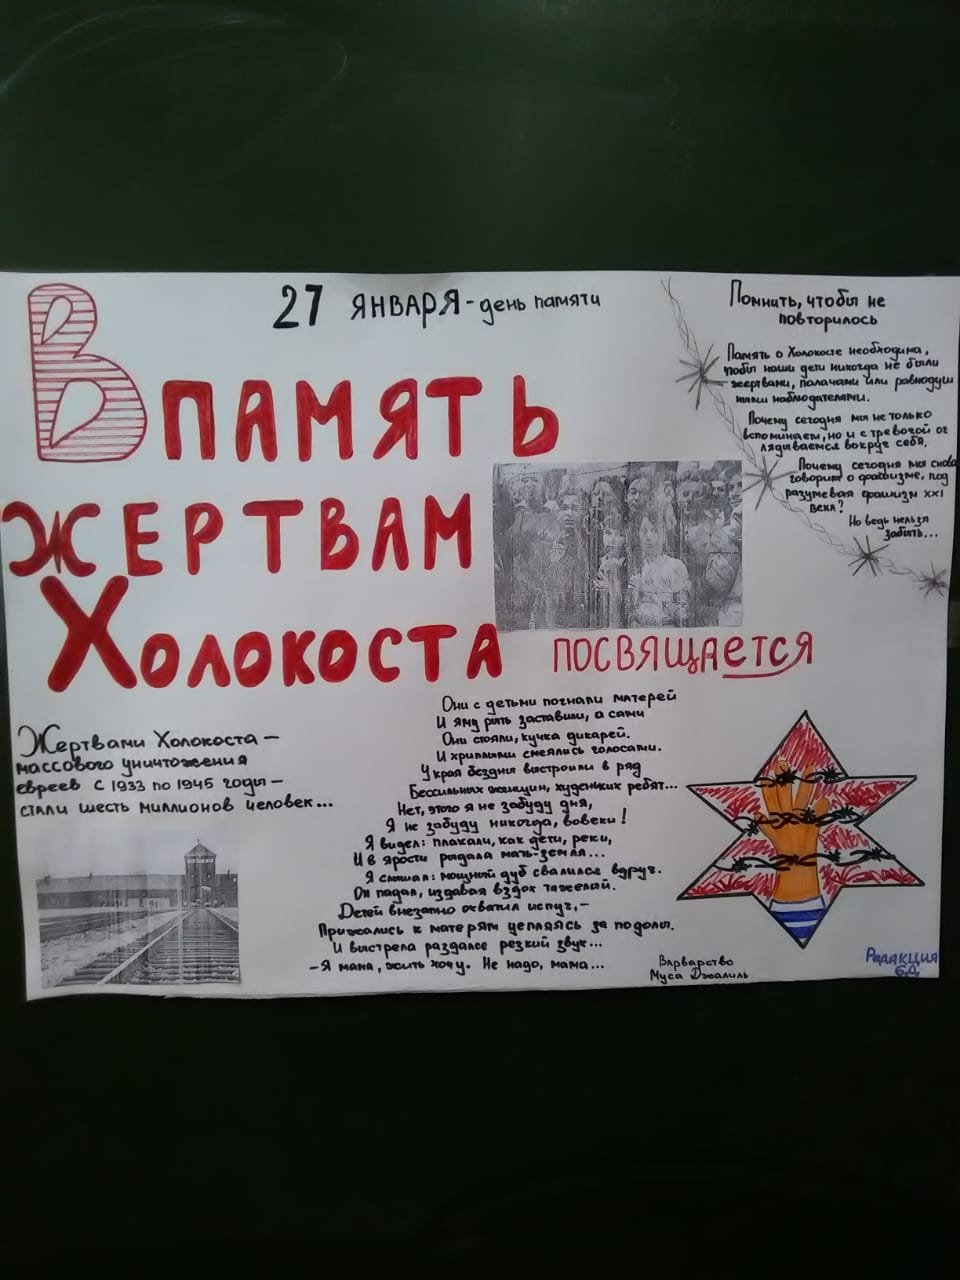 27 ЯНВАРЯ - день памяти
В ПАМЯТЬ
ЖЕРТВАМ
ХОЛОКОСТА
ПОСВЯЩАЕТСЯ
Помнить, чтобы не
повторилось
Память о Холокосте необходима,
чтобы наши дети никогда не были
жертвами, палачами или равнодуш
ными наблюдателями.
Почему сегодня мы не только
вспоминаем, но и с тревогой ог
лядываемся вокруг себя.
Почему сегодня мы снова
говорим о фашизме, под
разумевая фашизм XXI
века?
Но ведь нельзя
забыть...
Жертвами Холокоста –
массового уничтожения
евреев с 1933 по 1945 годы –
стали шесть миллионов человек...
Они с детьми погнали матерей
И яму рыть заставили, а сами
Они стояли, кучка дикарей.
И хриплыми смеялись голосами.
У края бездны выстроили в ряд
Бессильных женщин, худеньких ребят...
Нет, этого я не забуду дня,
Я не забуду никогда, вовеки!
Я видел: плакали, как дети, реки,
И в ярости рыдала мать-земля...
Я слышал: мощный дуб свалился вдруг.
Он падал, издавая вздох тяжелый.
Детей внезапно охватил испуг, –
Прижались к матерям цепляясь за подолы.
И выстрела раздался резкий звук...
– Я мама, жить хочу. Не надо, мама...
Варварство
Муса Джалиль
Редакция
6Д